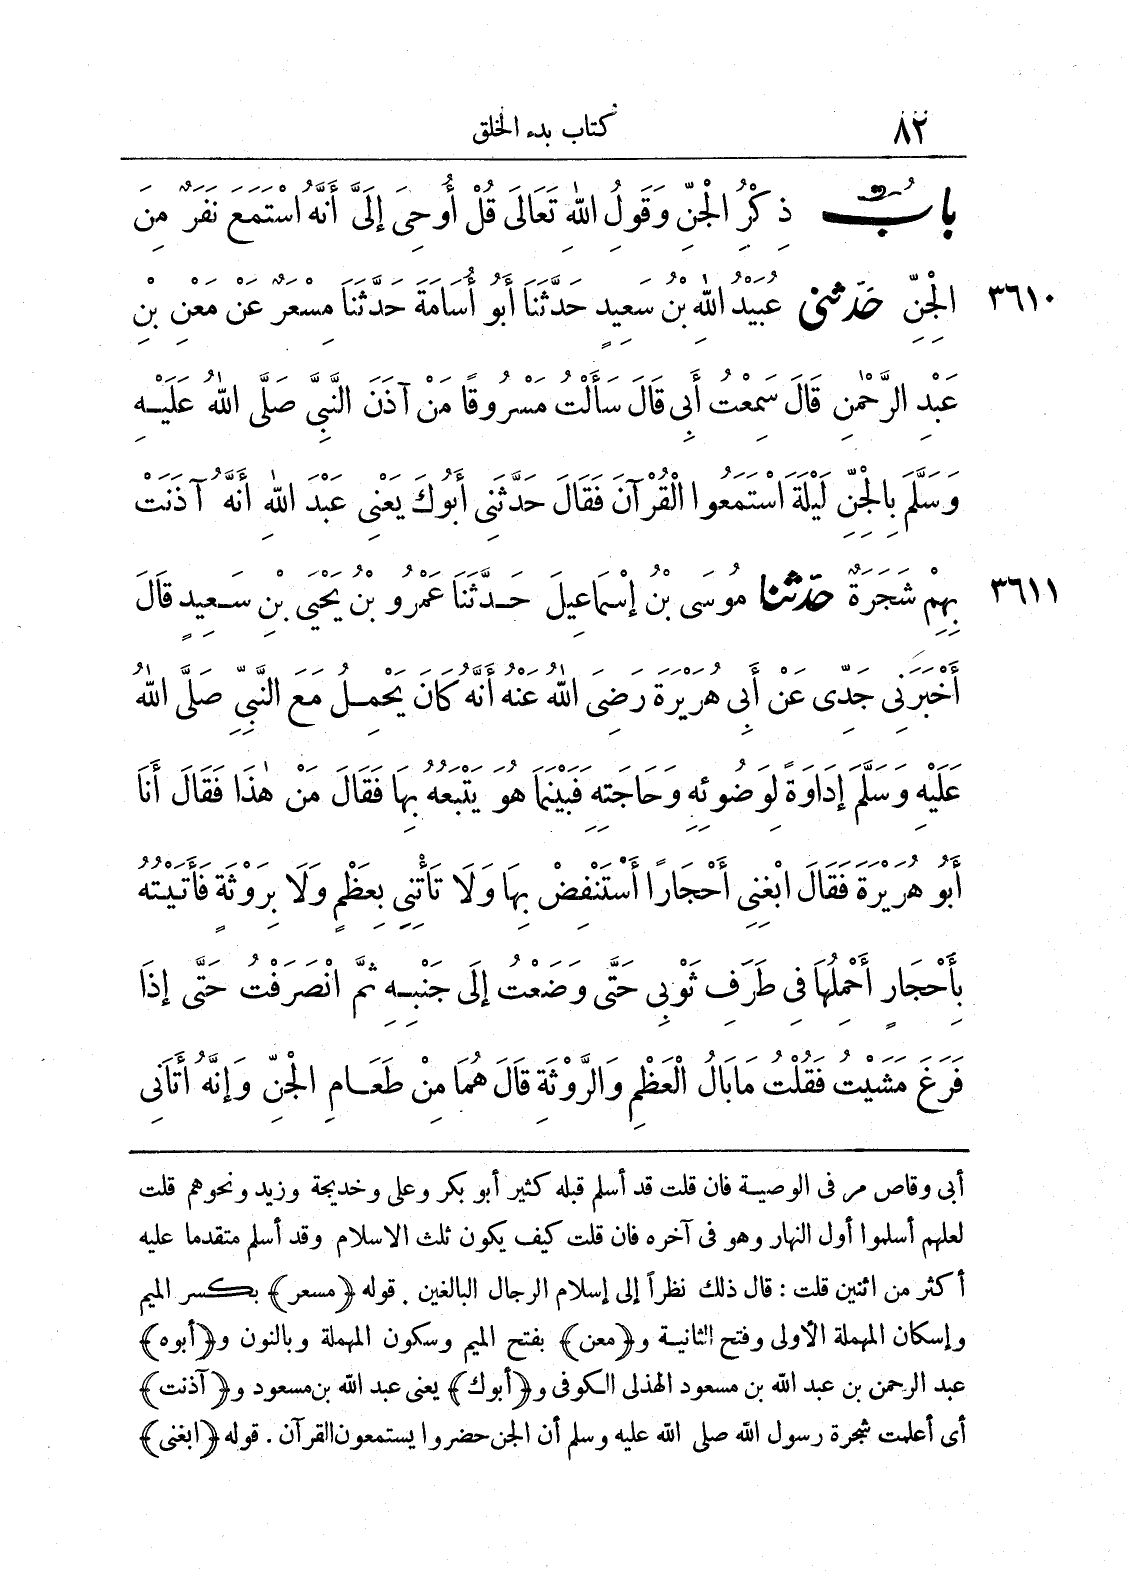 ٨٢
كتاب بدء الخلق
بَابُ ذِكْرُ الْجِنِّ وَقَوْلُ اللهِ تَعَالَى قُلْ أُوحِىَ إِلَىَّ أَنَّهُ اسْتَمَعَ نَفَرٌ مِنَ
٣٦١٠ الْجِنِّ حَدَّثَنِى عُبَيْدُ اللهِ بْنُ سَعِيدٍ حَدَّثَنَا أَبُو أُسَامَةَ حَدَّثَنَا مِسْعَرٌ عَنْ مَعْنِ بْنِ
عَبْدِ الرَّحْمٰنِ قَالَ سَمِعْتُ أَبِى قَالَ سَأَلْتُ مَسْرُوقًا مَنْ آذَنَ النَّبِىَّ صَلَّى اللهُ عَلَيْهِ
وَسَلَّمَ بِالْجِنِّ لَيْلَةَ اسْتَمَعُوا الْقُرْآنَ فَقَالَ حَدَّثَنِى أَبُوكَ يَعْنِى عَبْدَ اللهِ أَنَّهُ آذَنَتْ
٣٦١١ بِهِمْ شَجَرَةٌ حَدَّثَنَا مُوسَى بْنُ إِسْمَاعِيلَ حَدَّثَنَا عَمْرُو بْنُ يَحْيَى بْنِ سَعِيدٍ قَالَ
أَخْبَرَنِى جَدِّى عَنْ أَبِى هُرَيْرَةَ رَضِىَ اللهُ عَنْهُ أَنَّهُ كَانَ يَحْمِلُ مَعَ النَّبِىِّ صَلَّى اللهُ
عَلَيْهِ وَسَلَّمَ إِدَاوَةً لِوَضُوئِهِ وَحَاجَتِهِ فَبَيْنَمَا هُوَ يَتْبَعُهُ بِهَا فَقَالَ مَنْ هٰذَا فَقَالَ أَنَا
أَبُو هُرَيْرَةَ فَقَالَ ابْغِنِى أَحْجَارًا أَسْتَنْفِضْ بِهَا وَلَا تَأْتِنِى بِعَظْمٍ وَلَا بِرَوْثَةٍ فَأَتَيْتُهُ
بِأَحْجَارٍ أَحْمِلُهَا فِى طَرَفِ ثَوْبِى حَتَّى وَضَعْتُ إِلَى جَنْبِهِ ثُمَّ انْصَرَفْتُ حَتَّى إِذَا
فَرَغَ مَشَيْتُ فَقُلْتُ مَا بَالُ الْعَظْمِ وَالرَّوْثَةِ قَالَ هُمَا مِنْ طَعَامِ الْجِنِّ وَإِنَّهُ أَتَانِى
أبى وقاص مر فى الوصية فان قلت قد أسلم قبله كثير أبو بكر وعلى وخديجة وزيد ونحوهم قلت
لعلهم أسلموا أول النهار وهو فى آخره فان قلت كيف يكون ثلث الاسلام وقد أسلم متقدما عليه
أكثر من اثنين قلت : قال ذلك نظراً إلى إسلام الرجال البالغين . قوله ﴿مسعر﴾ بكسر الميم
وإسكان المهملة الأولى وفتح الثانية و﴿معن﴾ بفتح الميم وسكون المهملة وبالنون و﴿أبوه﴾
عبد الرحمن بن عبد الله بن مسعود الهذلى الكوفى و﴿أبوك﴾ يعنى عبد الله بن مسعود و﴿آذنت﴾
أى أعلمت شجرة رسول الله صلى الله عليه وسلم أن الجن حضروا يستمعون القرآن . قوله ﴿ابغنى﴾